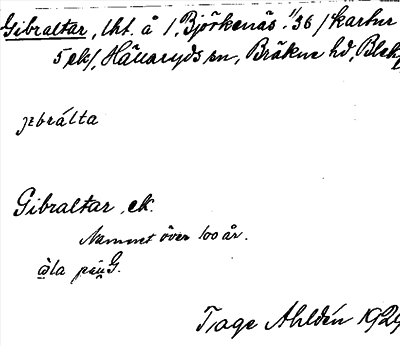 Gibraltar, lht. å 1, Björkenäs 1/36 / kartnr
5 ek/, Hällaryds sn, Bräkne hd, Blek
jɪbrálta
Gibraltar, ek.
Namnet över 100 år.
G.
Tage Ahldén 192